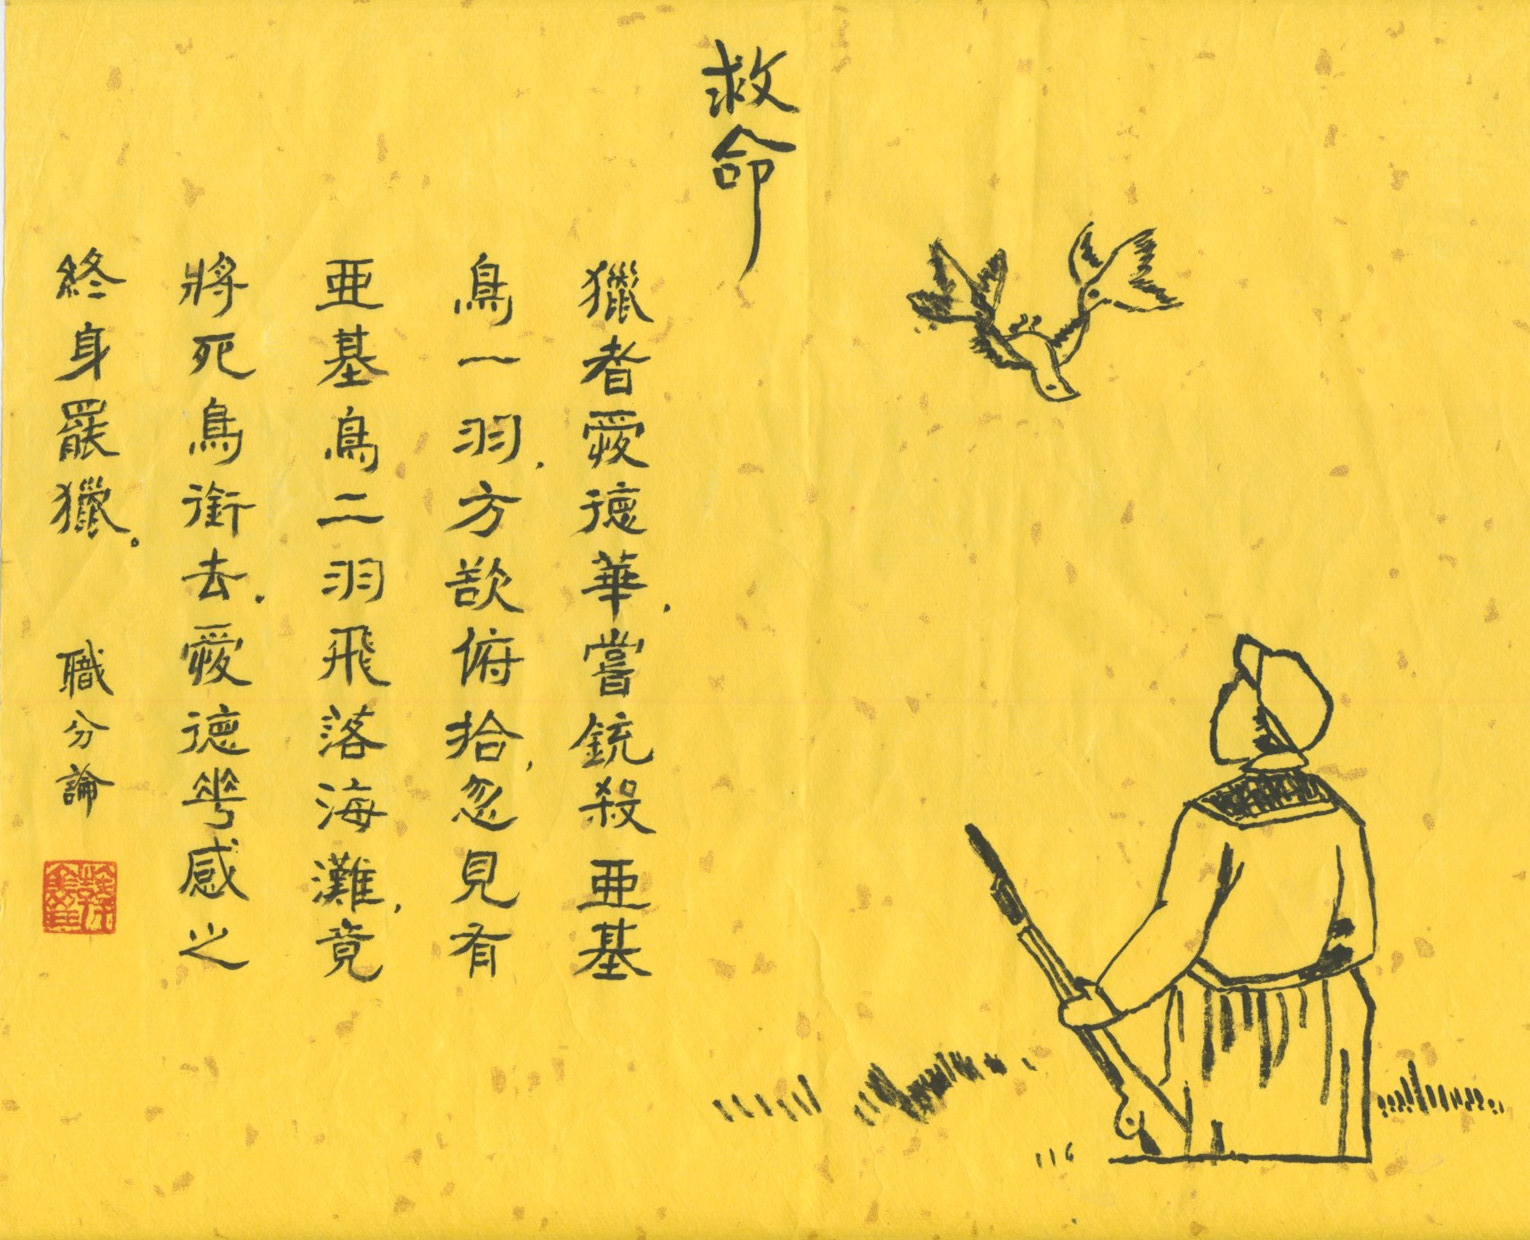 救命
獵者愛德華，嘗銃殺亞基
鳥一羽，方欲俯拾，忽見有
亞基鳥二羽飛落海灘，竟
將死鳥銜去，愛德華感之
終身罷獵。
職分論